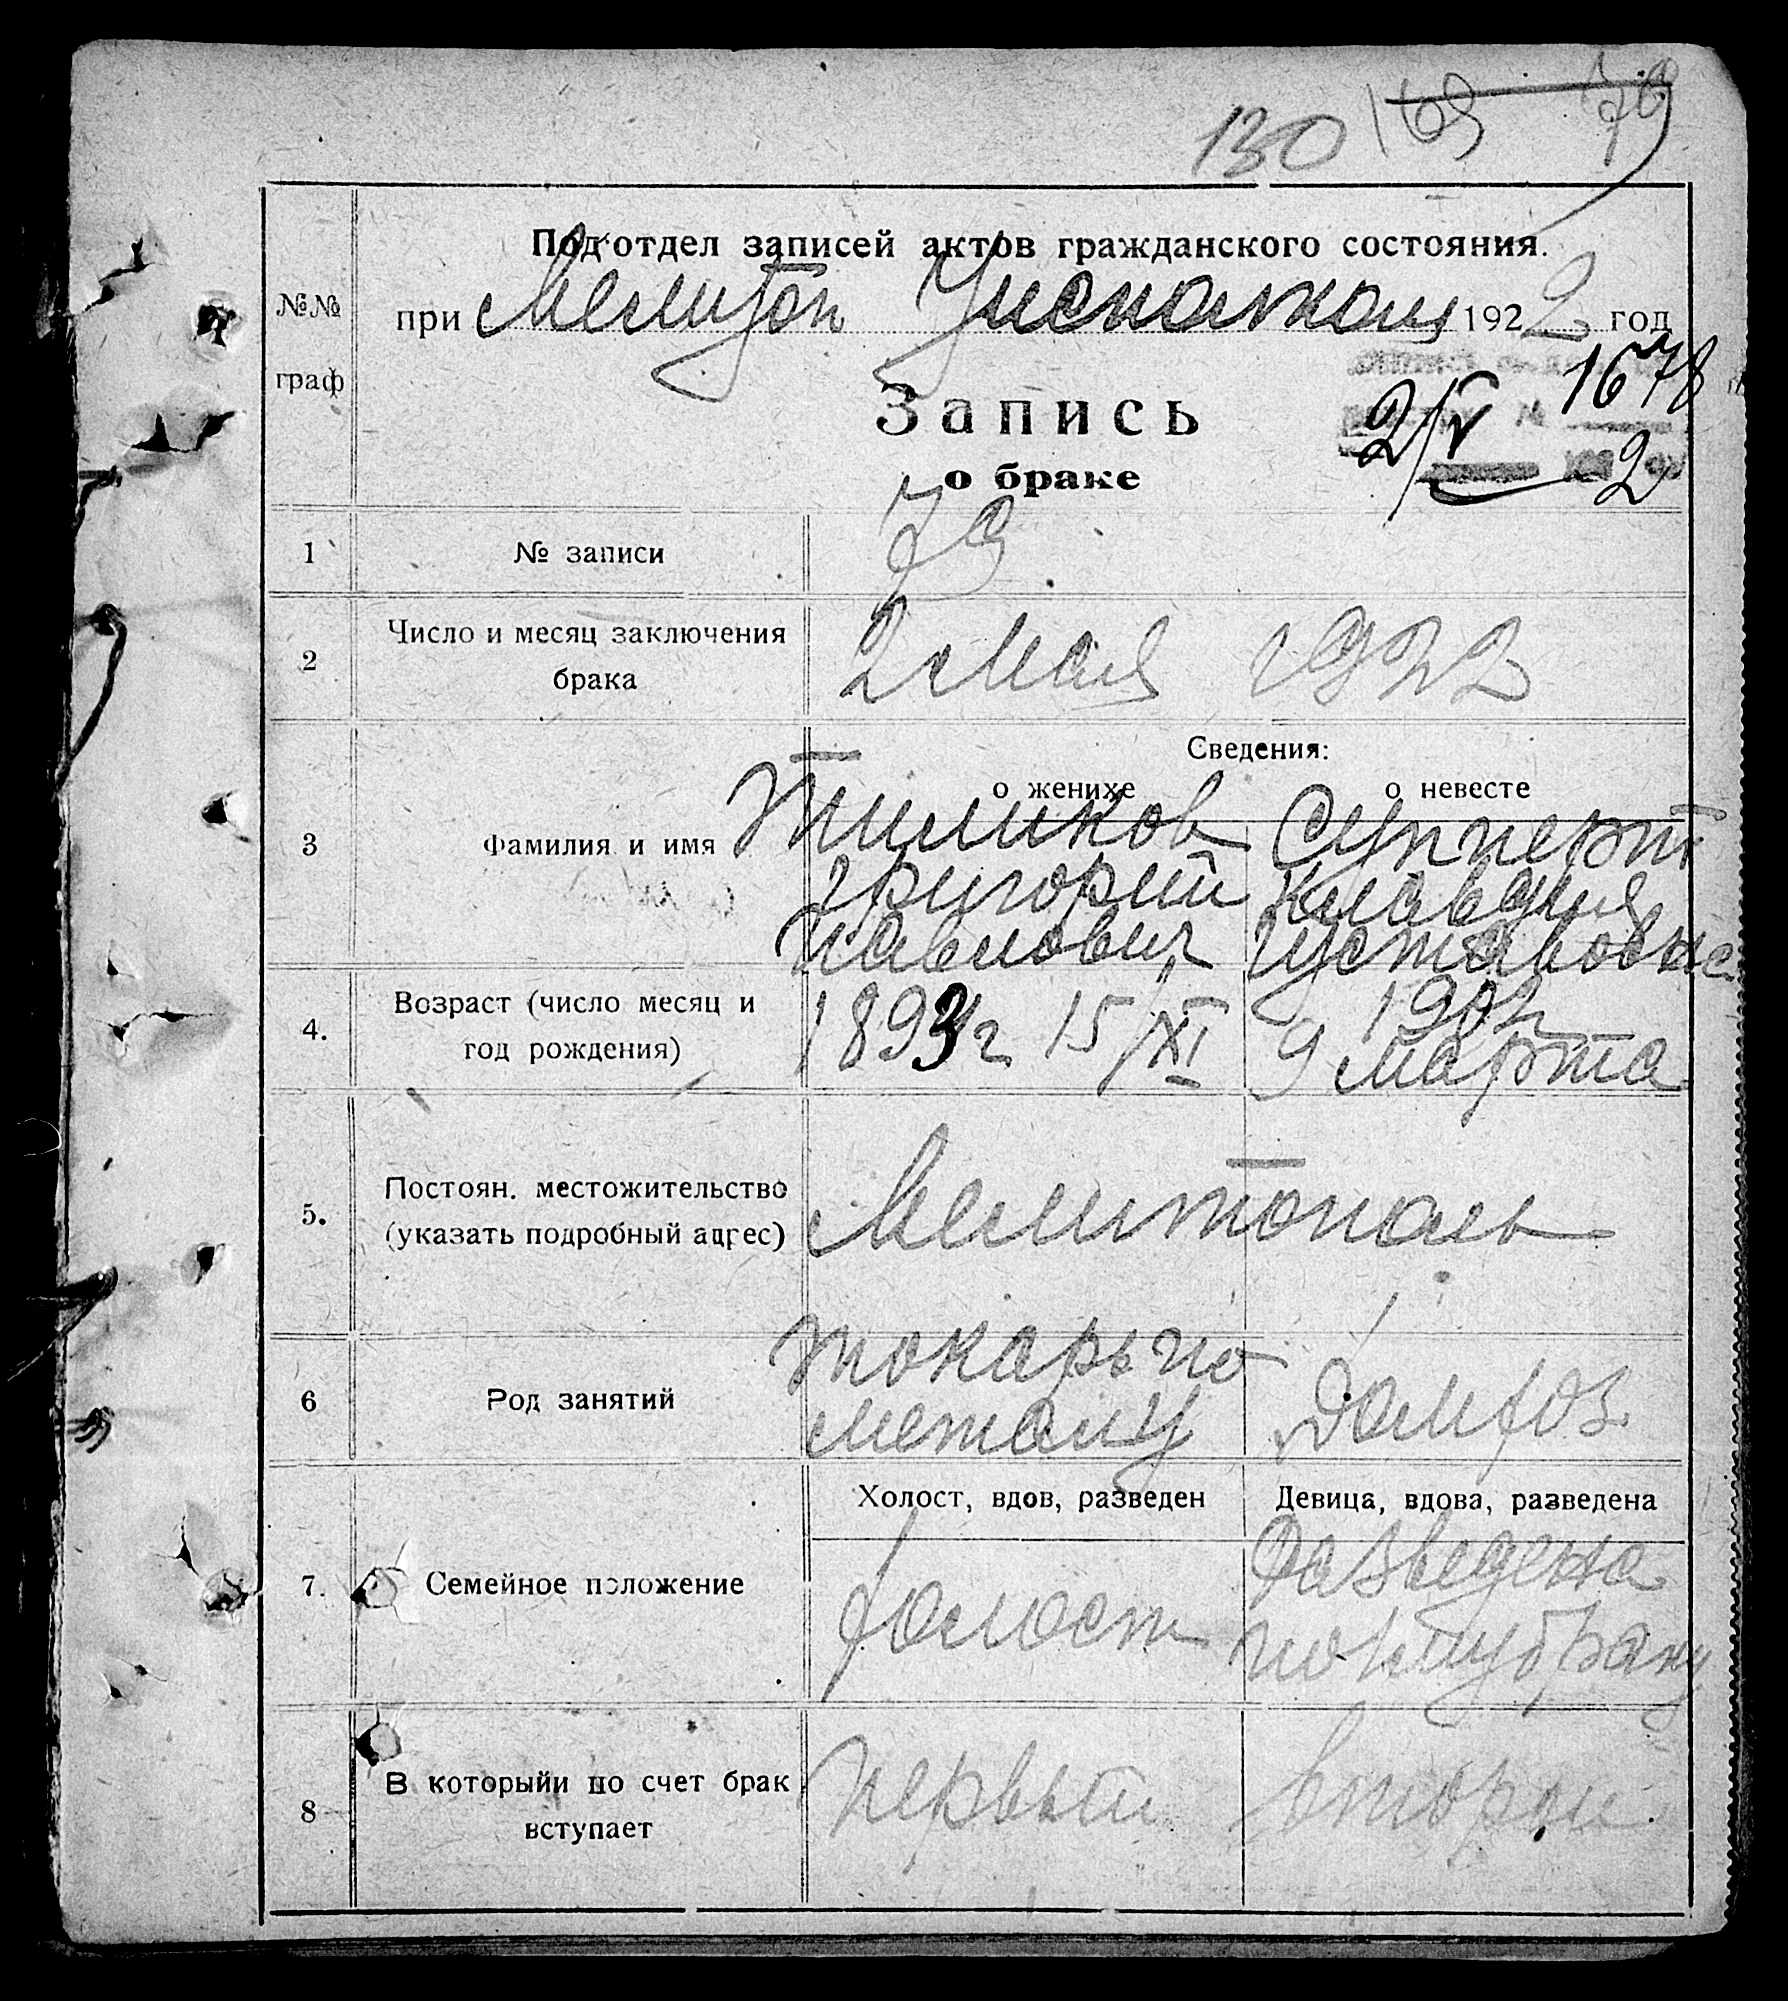 130 169
Подотдел записей актов гражданского состояния.
№№
граф
при Мелитоп Уисполком 1922 год
1678
2/V 2
Запись
о браке
1 № записи 79
2 Число и месяц заключения
брака
2 Мая 1922
Сведения:
о женихе о невесте
3 Фамилия и имя
Тиликов Супперт
Григорий Клавдия
Павлович Густавовна
4. Возраст (число месяц и
год рождения)
1893 г 15/XI 1902
9 Марта
5. Постоян. местожительство
(указать подробный адрес)
Мелитополь
6 Род занятий
токарь по
металу
Домхоз
Холост, вдов, разведен Девица, вдова, разведена
7. Семейное положение
холост
Разведена
по 1му браку
8 В которыйи по счет брак
вступает
первый второй